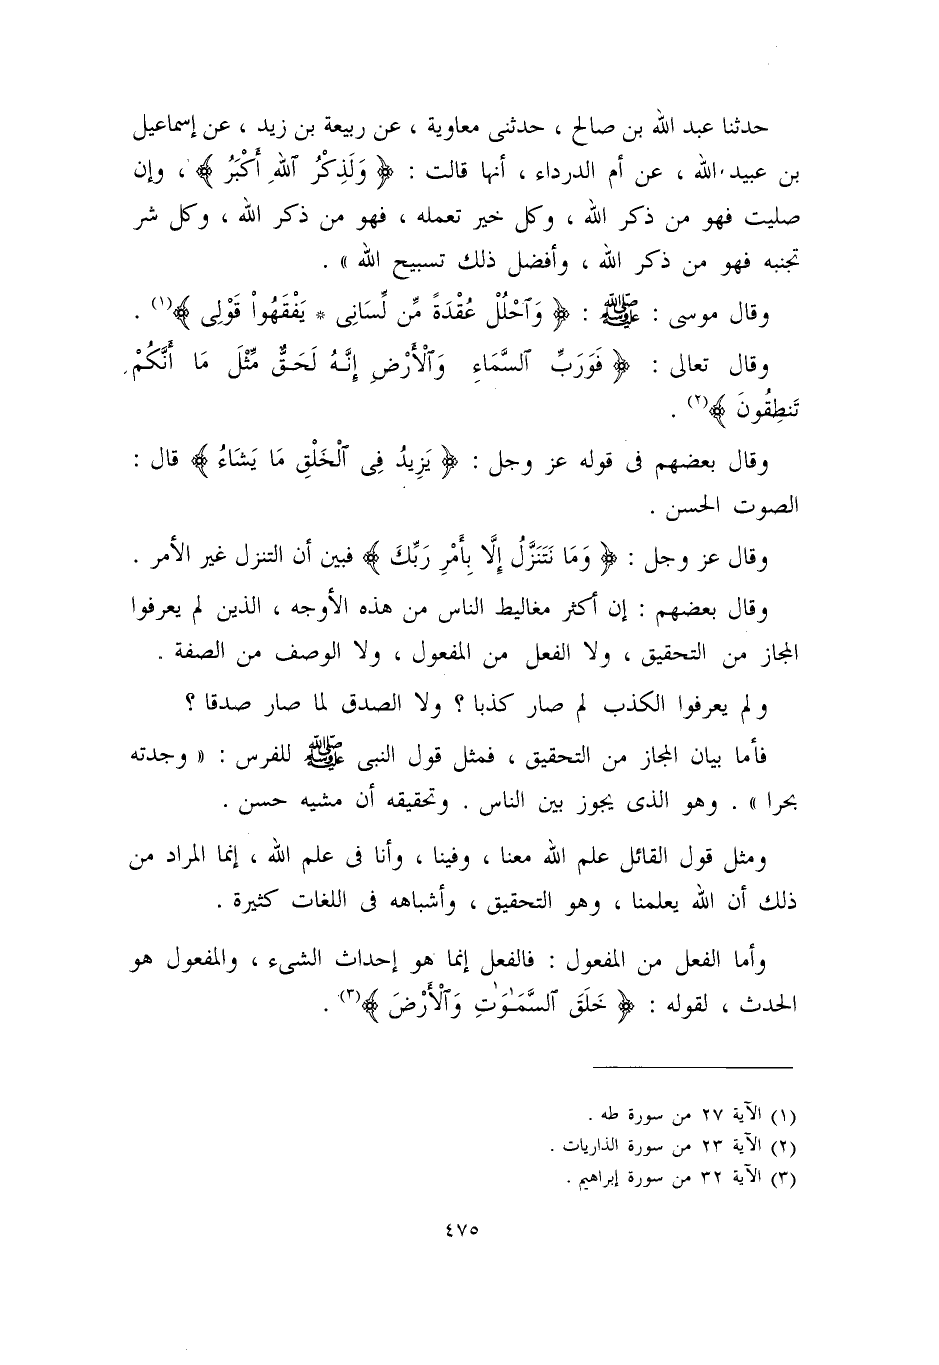 حدثنا عبد الله بن صالح ، حدثنى معاوية ، عن ربيعة بن زيد ، عن إسماعيل
بن عبيد الله ، عن أم الدرداء ، أنها قالت : ﴿ وَلَذِكْرُ ٱللَّهِ أَكْبَرُ ﴾ ، وإن
صليت فهو من ذكر الله ، وكل خير تعمله ، فهو من ذكر الله ، وكل شر
تجنبه فهو من ذكر الله ، وأفضل ذلك تسبيح الله » .
وقال موسى : ﷺ : ﴿ وَٱحْلُلْ عُقْدَةً مِّن لِّسَانِى * يَفْقَهُواْ قَوْلِى ﴾(١) .
وقال تعالى : ﴿ فَوَرَبِّ ٱلسَّمَاءِ وَٱلْأَرْضِ إِنَّهُ لَحَقٌّ مِّثْلَ مَا أَنَّكُمْ
تَنطِقُونَ ﴾(٢) .
وقال بعضهم فى قوله عز وجل : ﴿ يَزِيدُ فِى ٱلْخَلْقِ مَا يَشَاءُ ﴾ قال :
الصوت الحسن .
وقال عز وجل : ﴿ وَمَا نَتَنَزَّلُ إِلَّا بِأَمْرِ رَبِّكَ ﴾ فبين أن التنزل غير الأمر .
وقال بعضهم : إن أكثر مغاليط الناس من هذه الأوجه ، الذين لم يعرفوا
المجاز من التحقيق ، ولا الفعل من المفعول ، ولا الوصف من الصفة .
ولم يعرفوا الكذب لم صار كذبا ؟ ولا الصدق لما صار صدقا ؟
فأما بيان المجاز من التحقيق ، فمثل قول النبى ﷺ للفرس : « وجدته
بحرا » . وهو الذى يجوز بين الناس . وتحقيقه أن مشيه حسن .
ومثل قول القائل علم الله معنا ، وفينا ، وأنا فى علم الله ، إنما المراد من
ذلك أن الله يعلمنا ، وهو التحقيق ، وأشباهه فى اللغات كثيرة .
وأما الفعل من المفعول : فالفعل إنما هو إحداث الشىء ، والمفعول هو
الحدث ، لقوله : ﴿ خَلَقَ ٱلسَّمَٰوَٰتِ وَٱلْأَرْضَ ﴾(٣) .
(١) الآية ٢٧ من سورة طه .
(٢) الآية ٢٣ من سورة الذاريات .
(٣) الآية ٣٢ من سورة إبراهيم .
٤٧٥